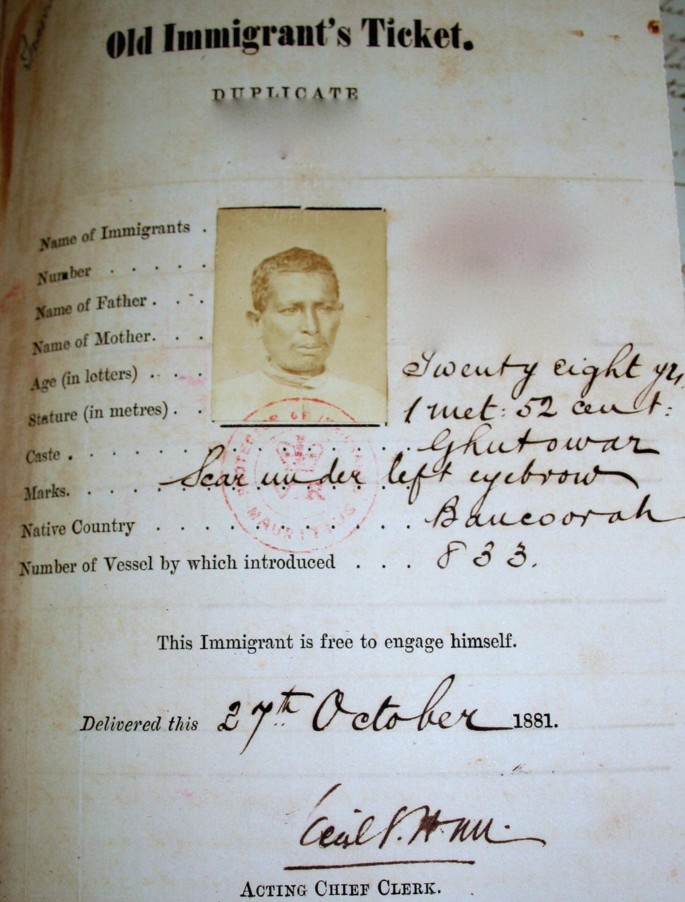 Old Immigrant's Ticket.
DUPLICATE
Name of Immigrants .
Number . . . . .
Name of Father . . .
Name of Mother. . .
Age (in letters) . . . Twenty eight yrs,
Stature (in metres) . . 1 met: 52 cent:
Caste . . . . . . . . . . . . Ghutowar
Marks. . . . . Scar under left eyebrow
Native Country . . . . . . . . . Bancoorah
Number of Vessel by which introduced . . . 833.
MAURITIUS
This Immigrant is free to engage himself.
Delivered this 27th October 1881.
ACTING CHIEF CLERK.